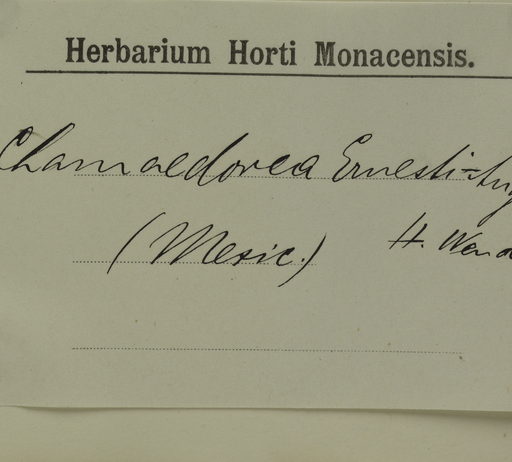 Herbarium Horti Monacensis.
Chamaedorea Ernesti-Aug
(Mexic.) H. Wend